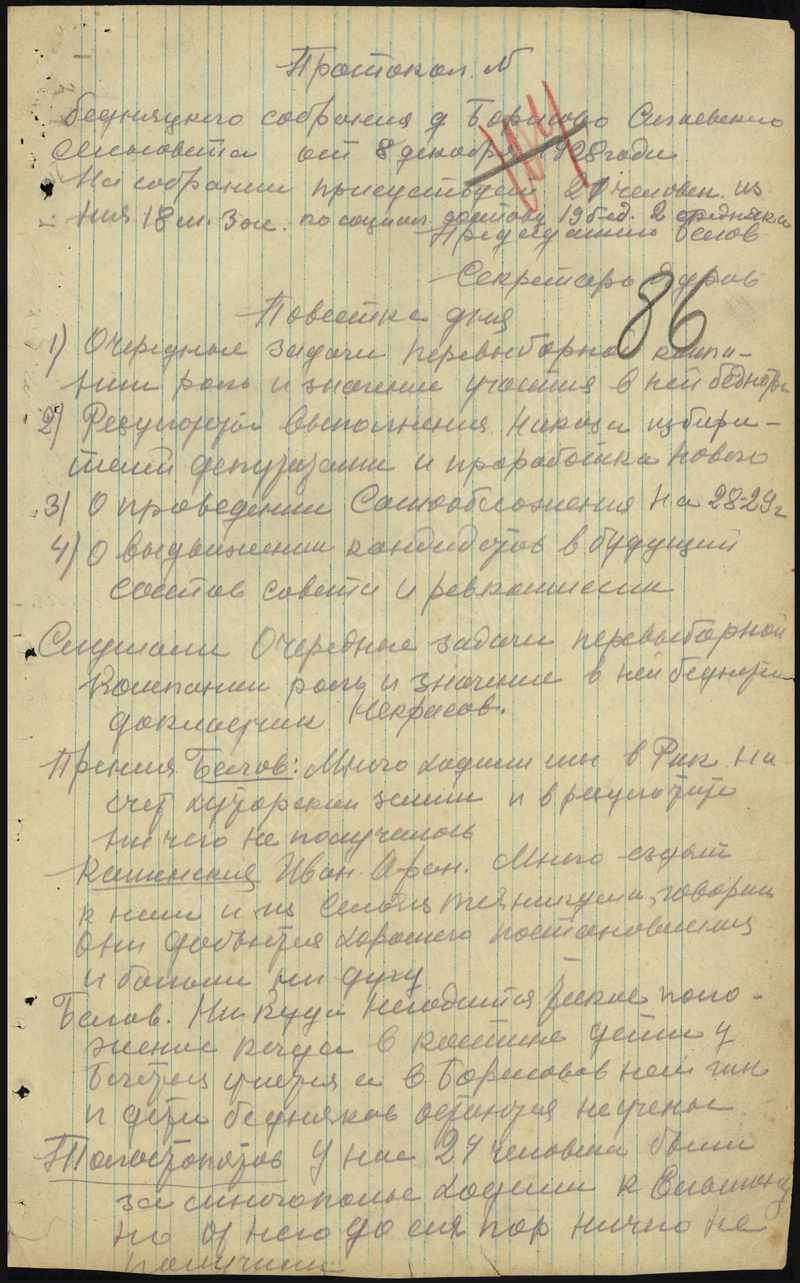 Протокол N
бедняцкого собрания д Борисово
сельсовета от 8 декабря 1928 года
На собрании присуствует 21 человек из
них 18 м. 3 ж. по социал. составу 19 бед. 2 средняка
Председатель Белов
Секретарь
86
Повестка дня
1) Очередные задачи перевыборной кампа-
нии роль и значение участия в ней бедноты
2) Результаты выполнения Наказа избира-
телей депутатами и проработка нового
3) О проведении Самообложения на 28-29 г
4) О выдвижении кандидатов в будущий
состав совета и ревкомиссии
Слушали Очередные задачи перевыборной
Компании роль и значение в ней бедноты
докладчик Некрасов.
Прения Белов: Много ходили мы в Рик на
счет хуторской земли и в результате
ни чего не получалось
Иван Афон. Много ездит
к нам и из техникума, говорим
они добьются хорошего постановления
и больше ни
Белов. Ни куда негодится такое поло-
жение когда в дети у
учатся а в Борисовов нем
и дети бедняков остаются неучены
У нас 24 человека были
за многополье ходили к
но от него до сих пор ничего не
получили